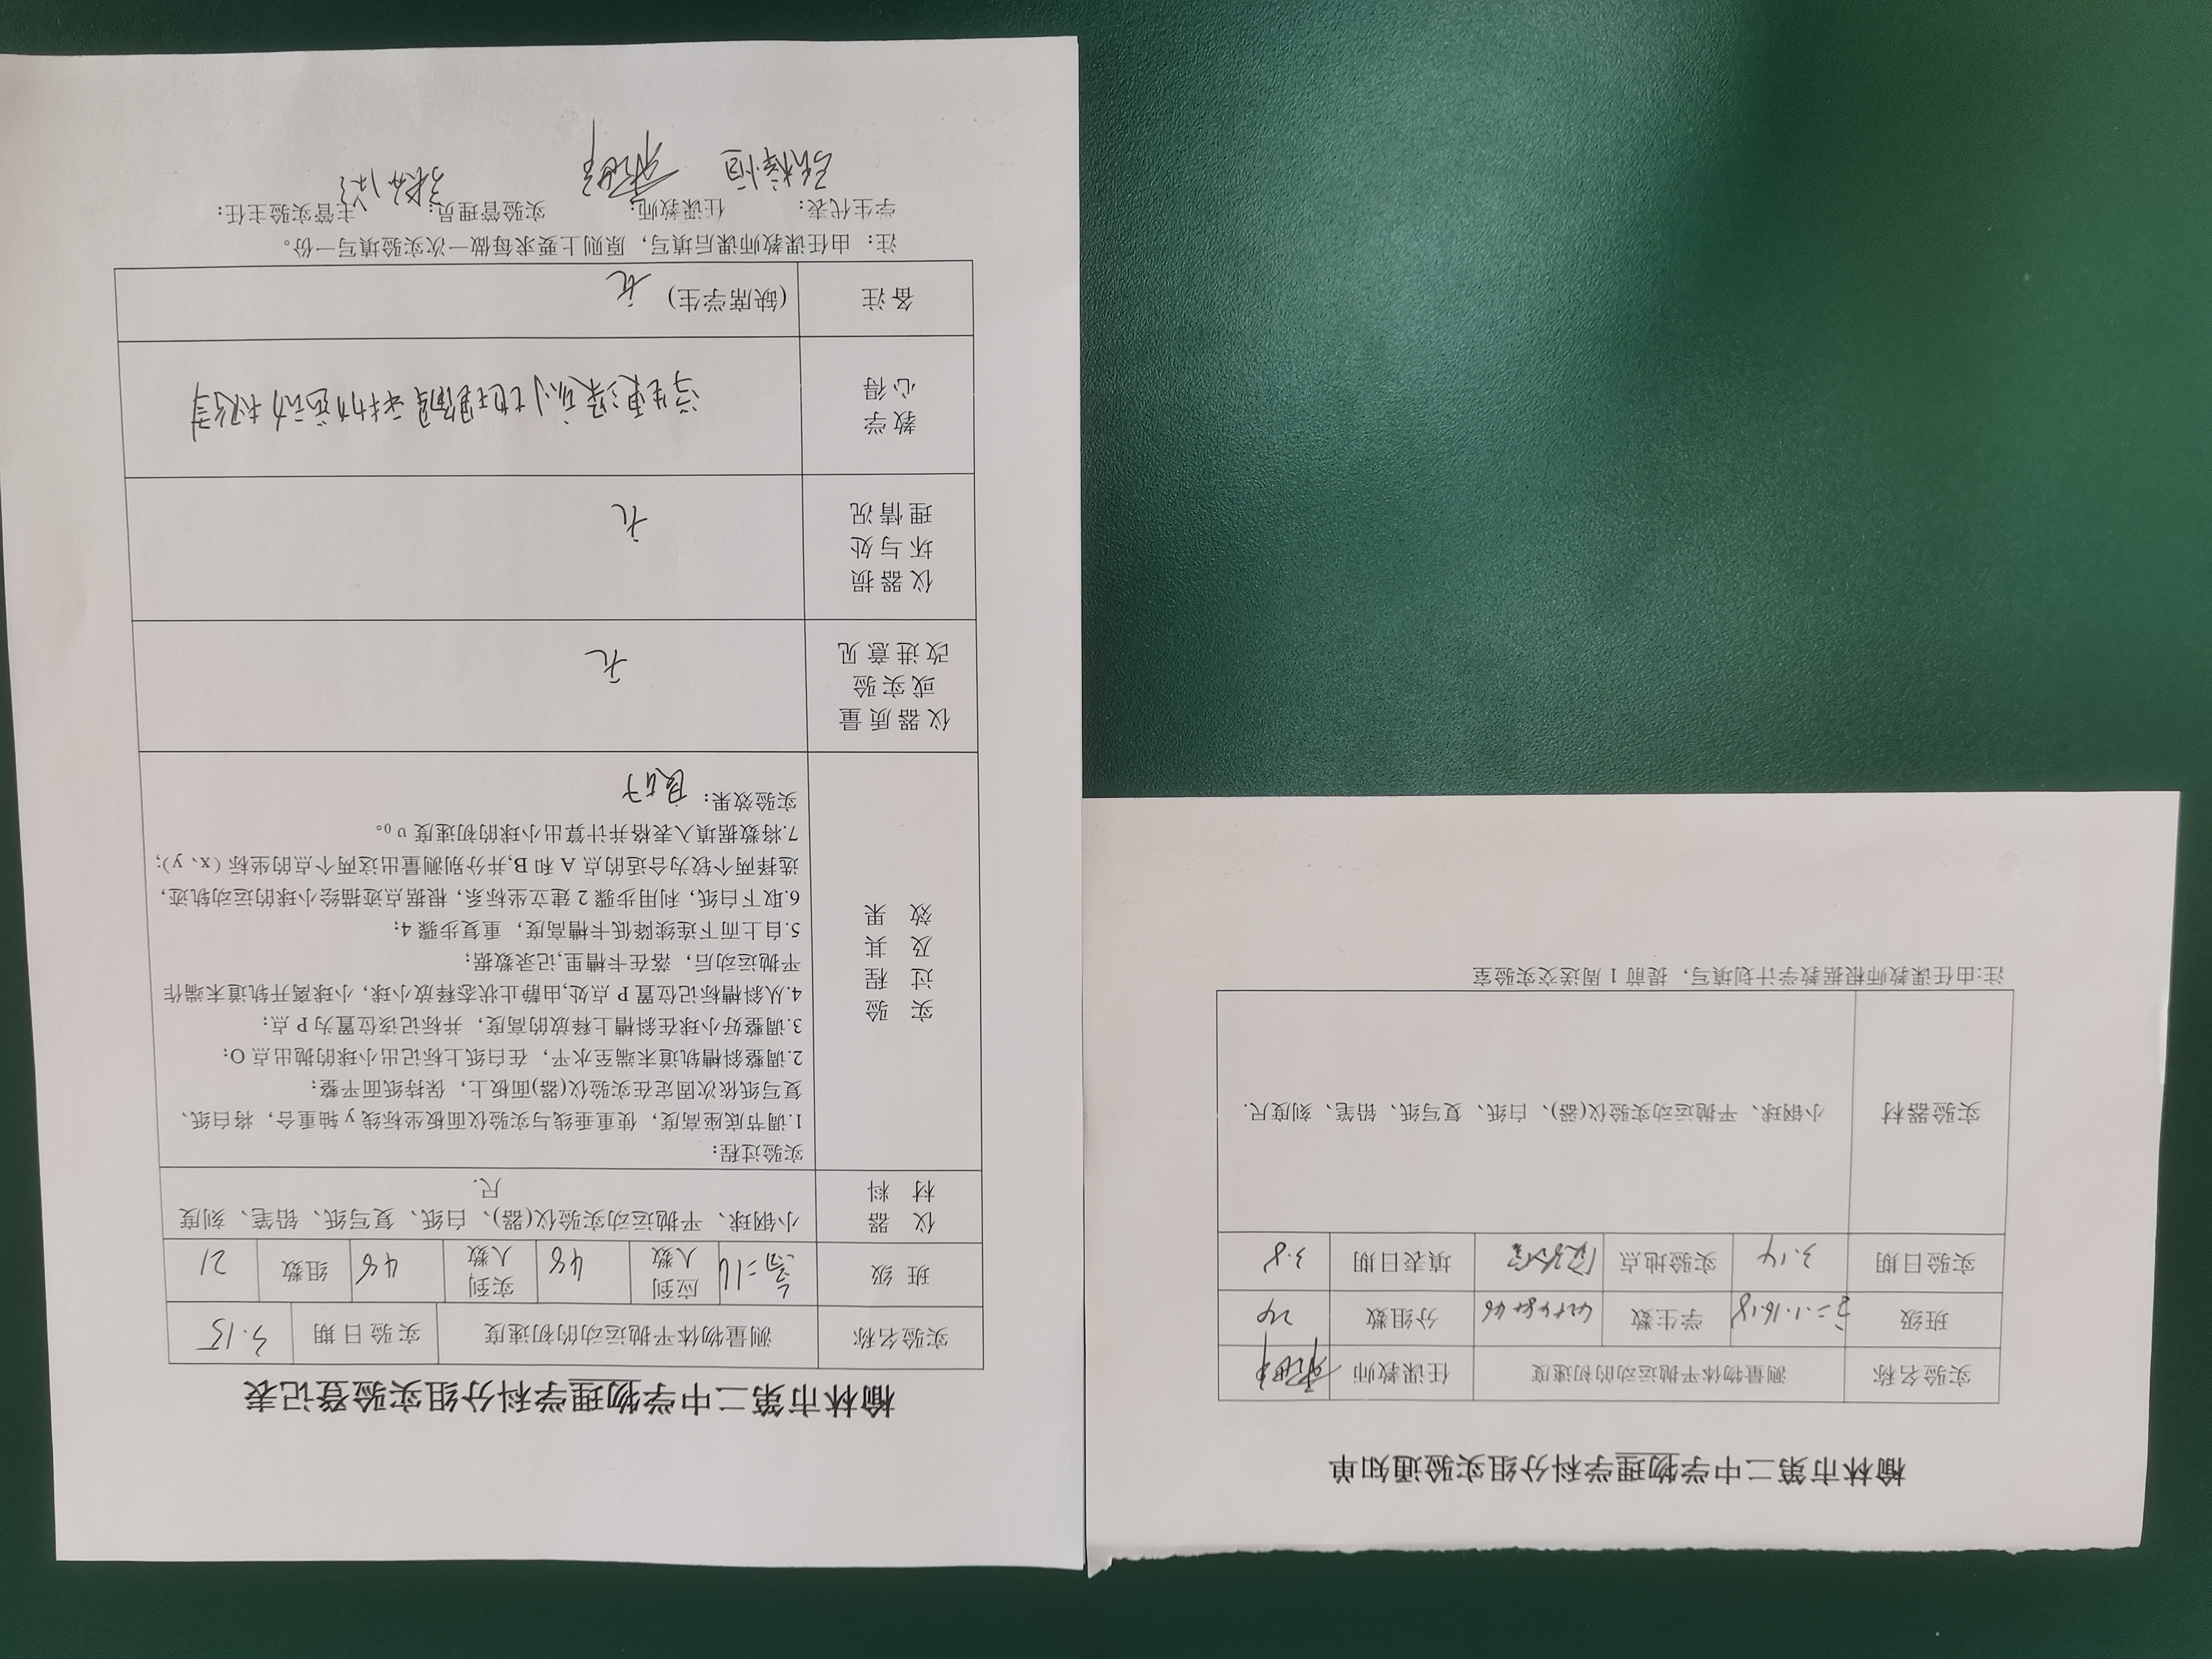 榆林市第二中学物理学科分组实验通知单
实验名称 测量物体平抛运动的初速度 任课教师
班级 高二.1.16.18 学生数 分组数 24
实验日期 3.14 实验地点 填表日期 3.8
实验器材 小钢球、平抛运动实验仪(器)、白纸、复写纸、铅笔、刻度尺.
注:由任课教师根据教学计划填写，提前1周送交实验室
榆林市第二中学物理学科分组实验登记表
实验名称 测量物体平抛运动的初速度 实验日期 3.15
班级 高二16 应到人数 48 实到人数 48 组数 21
仪器材料 小钢球、平抛运动实验仪(器)、白纸、复写纸、铅笔、刻度
尺.
实验过程及其效果
实验过程：
1.调节底座高度，使重垂线与实验仪面板坐标线y轴重合，将白纸、
复写纸依次固定在实验仪(器)面板上，保持纸面平整；
2.调整斜槽轨道末端至水平，在白纸上标记出小球的抛出点O；
3.调整好小球在斜槽上释放的高度，并标记该位置为P点；
4.从斜槽标记位置P点处,由静止状态释放小球，小球离开轨道末端作
平抛运动后，落在卡槽里,记录数据；
5.自上而下连续降低卡槽高度，重复步骤4；
6.取下白纸，利用步骤2建立坐标系，根据点迹描绘小球的运动轨迹，
选择两个较为合适的点A和B,并分别测量出这两个点的坐标（x、y）；
7.将数据填入表格并计算出小球的初速度υ₀。
实验效果： 良好
仪器质量或实验改进意见 无
仪器损坏与处理情况 无
教学心得 学生更深刻地理解平抛运动规律
备注 (缺席学生) 无
注：由任课教师课后填写，原则上要求每做一次实验填写一份。
学生代表： 任课教师： 实验管理员： 主管实验主任：